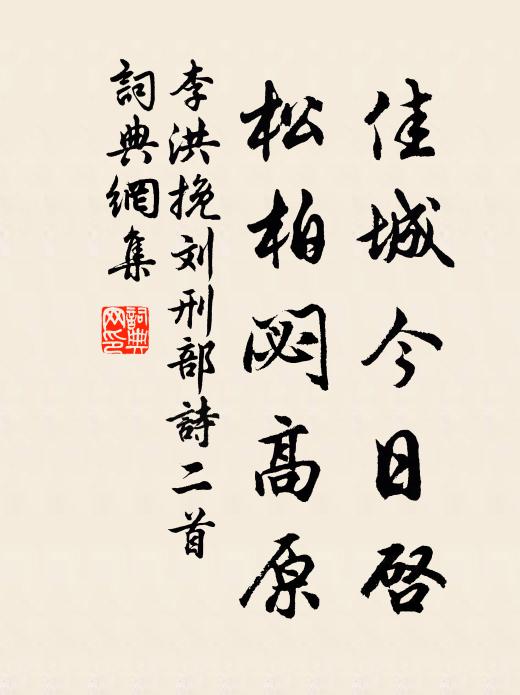 佳城今日啓
松柏閟高原
李洪挽刘刑部詩二首
詞典網集
詞典
网印